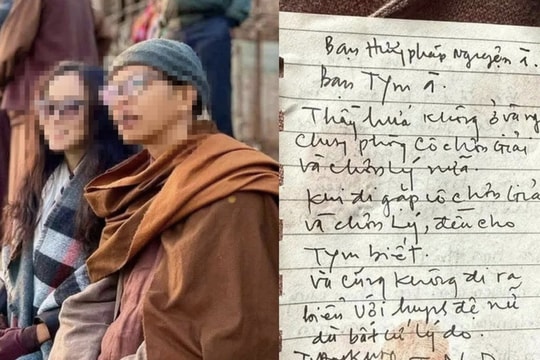 Bạn Huỳnh pháp Nguyện à.
Bạn Tym à.
Thầy hứa không ở và ng
chung phòng cô chơn Giải
và chơn Lý nữa.
Khi đi gặp cô chơn Giải
và chơn Lý, đều cho
Tym biết.
Và cũng không đi ra
biển với huynh đệ nữ
dù bất cứ lý do.